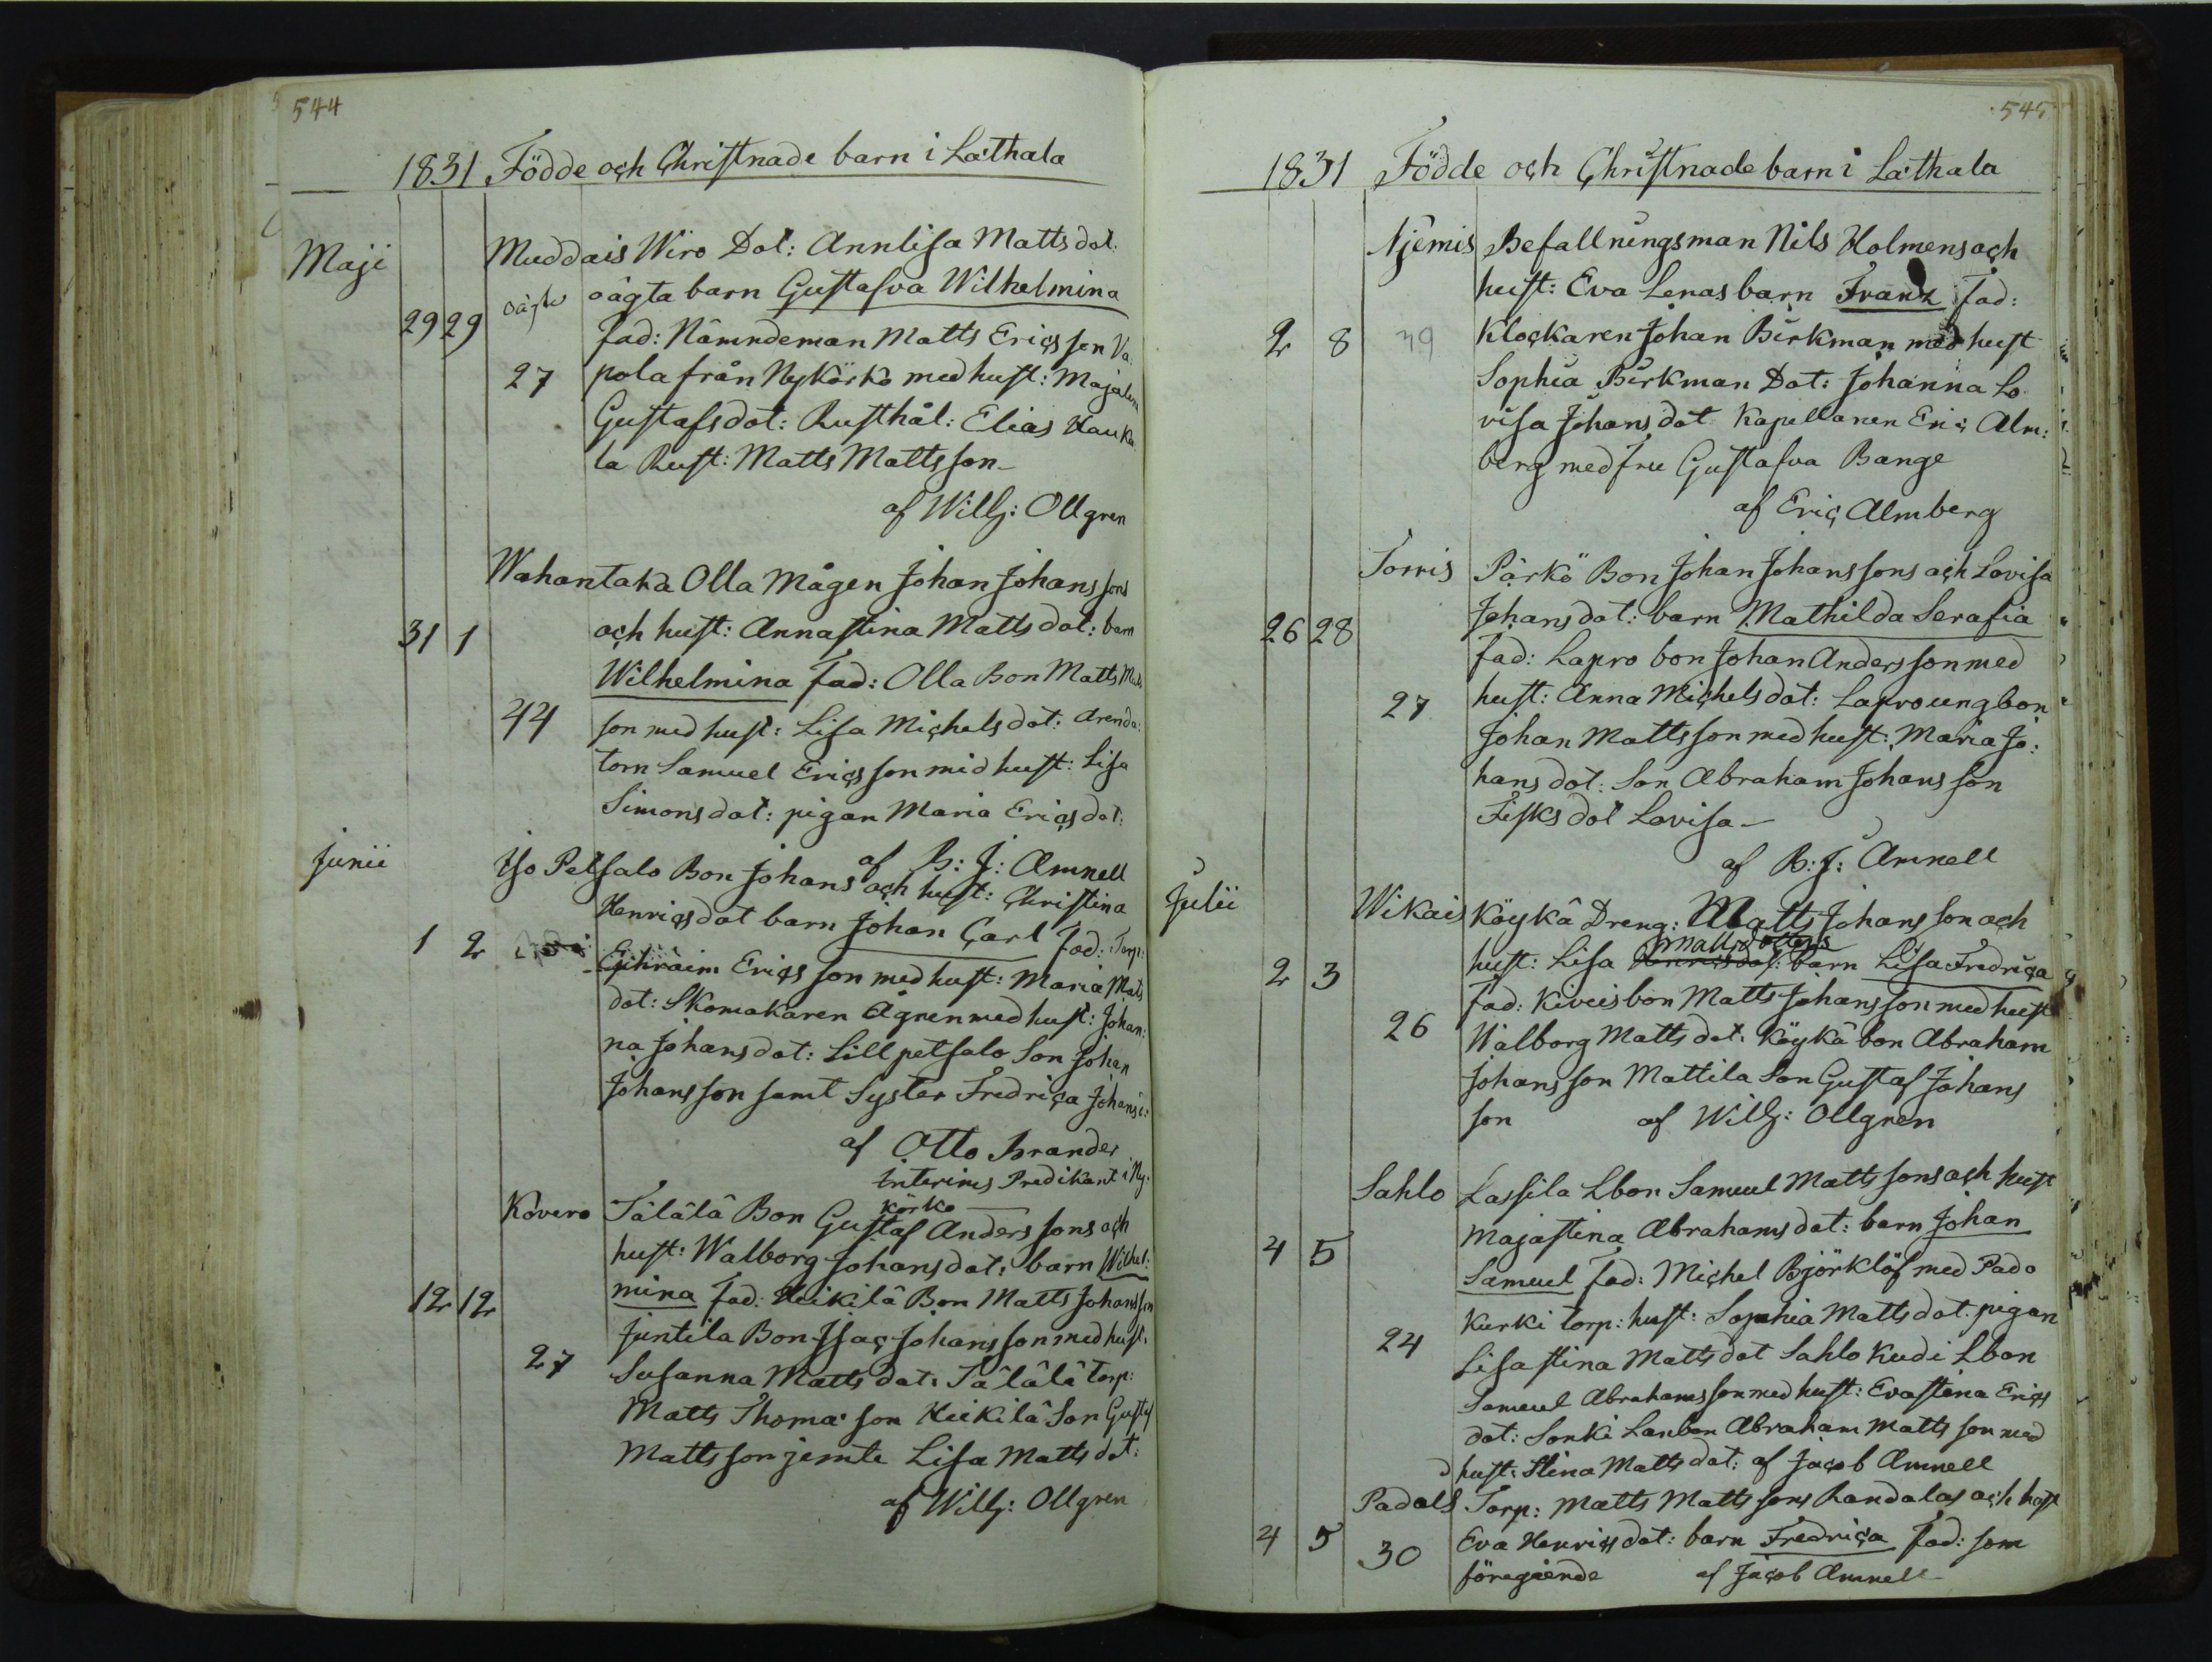 544
1831 Födde och Christnade barn i Lathala
Maji
Muddais Wiro Dot: Annlisa Matts dot:
oägta barn Gustafva Wilhelmina
oägta
29 29
fad: Nämndeman Matts Ericsson Va
27 pola från Nykörko med hust: Majalena
Gustafsdot: Rusthål: Elias Hauka
la Rust: Matts Mattsson
af Willh: Ollgren
Wahantaka Olla Mågen Johan Johanssons
31 1 och hust: Annastina Mattsdot: barn
Wilhelmina fad: Olla Bon Matts Matts
44 son med hust: Lisa Michelsdot: Arenda:
torn Samuel Ericsson med hust: Lisa
Simonsdot: pigan Maria Ericsdot:
af B: J: Amnell
Junii
Iso Pelsalo Bon Johans och hust: Christina
Henricsdot barn Johan Carl fad: Torp:
1 2
Ephraim Ericsson med hust: Maria Mats
dot: Skomakaren Ågren med hust: Johan:
na Johansdot: Lill petsalo Son Johan
Johansson samt Syster Fredrica Johansd:
af Otto Brander
interims Predikant i Ny:
körko
Kovero Tälälä Bon Gustaf Anderssons och
hust: Walborg Johansdot: barn Wilhel:
12 12 mina fad: Heikilä Bon Matts Johansson
Juntila Bon Isac Johansson med hust:
27 Susanna Mattsdot: Tälälä torp:
Matts Thomasson Heikilä Son Gustaf
Mattsson jemte Lisa Mattsdot:
af Willh: Ollgren
545
1831 Födde och Christnade barn i Lathala
Njemis Befallningsman Nils Holmens och
hust: Eva Lenas barn Franz fad:
2 8 39 Klockaren Johan Birkman med hust
Sophia Birkman Dot: Johanna Lo
visa Johansdot Kapellanen Eric Alm:
berg med fru Gustafva Bange
af Eric Almberg
Torris Pärkö Bon Johan Johanssons och Lovisa
26 28 Johansdot: barn Mathilda Serafia
fad: Lapro bon Johan Andersson med
27 hust: Anna Michelsdot: Lapro ungbon
Johan Mattsson med hust: Maria Jo:
hansdot: Son Abraham Johansson
Fisks dot Lovisa
af B: J: Amnell
Julii
Wikais Köykä Dreng: Matts Johansson och
Mattsdotters
2 3 hust: Lisa Henricsdot: barn Lisa Fredrica
fad: Kiveis bon Matts Johansson med hust
26 Walborg Mattsdot: Köykä bon Abraham
Johansson Mattila Son Gustaf Johans
son af Willh: Ollgren
Sahlo Lassila Lbon Samuel Mattssons och hust
4 5 Majastina Abrahamsdot: barn Johan
Samuel fad: Michel Björklöf med Pado
Kurki torp: hust: Sophia Mattsdot: pigan
24 Lisastina Mattsdot Sahlo Kudi Lbon
Samuel Abrahamsson med hust: Evastina Erics
dot: Sonki Lanbon Abraham Mattsson med
hust: Stina Mattsdot: af Jacob Amnell
Padols Torp: Matts Mattssons Randalas och hust
4 5 30 Eva Henricsdot: barn Fredrica fad: som
föregående af Jacob Amnell